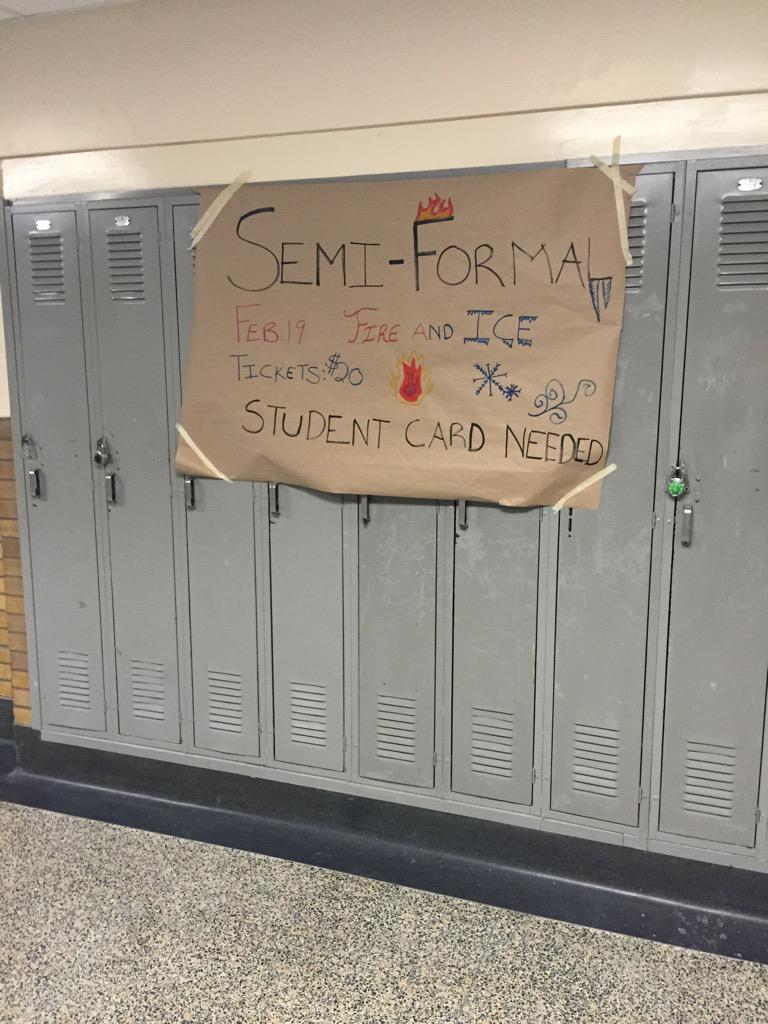 SEMI-FORMAL
FEB.19 FIRE AND ICE
TICKETS:$20
STUDENT CARD NEEDED